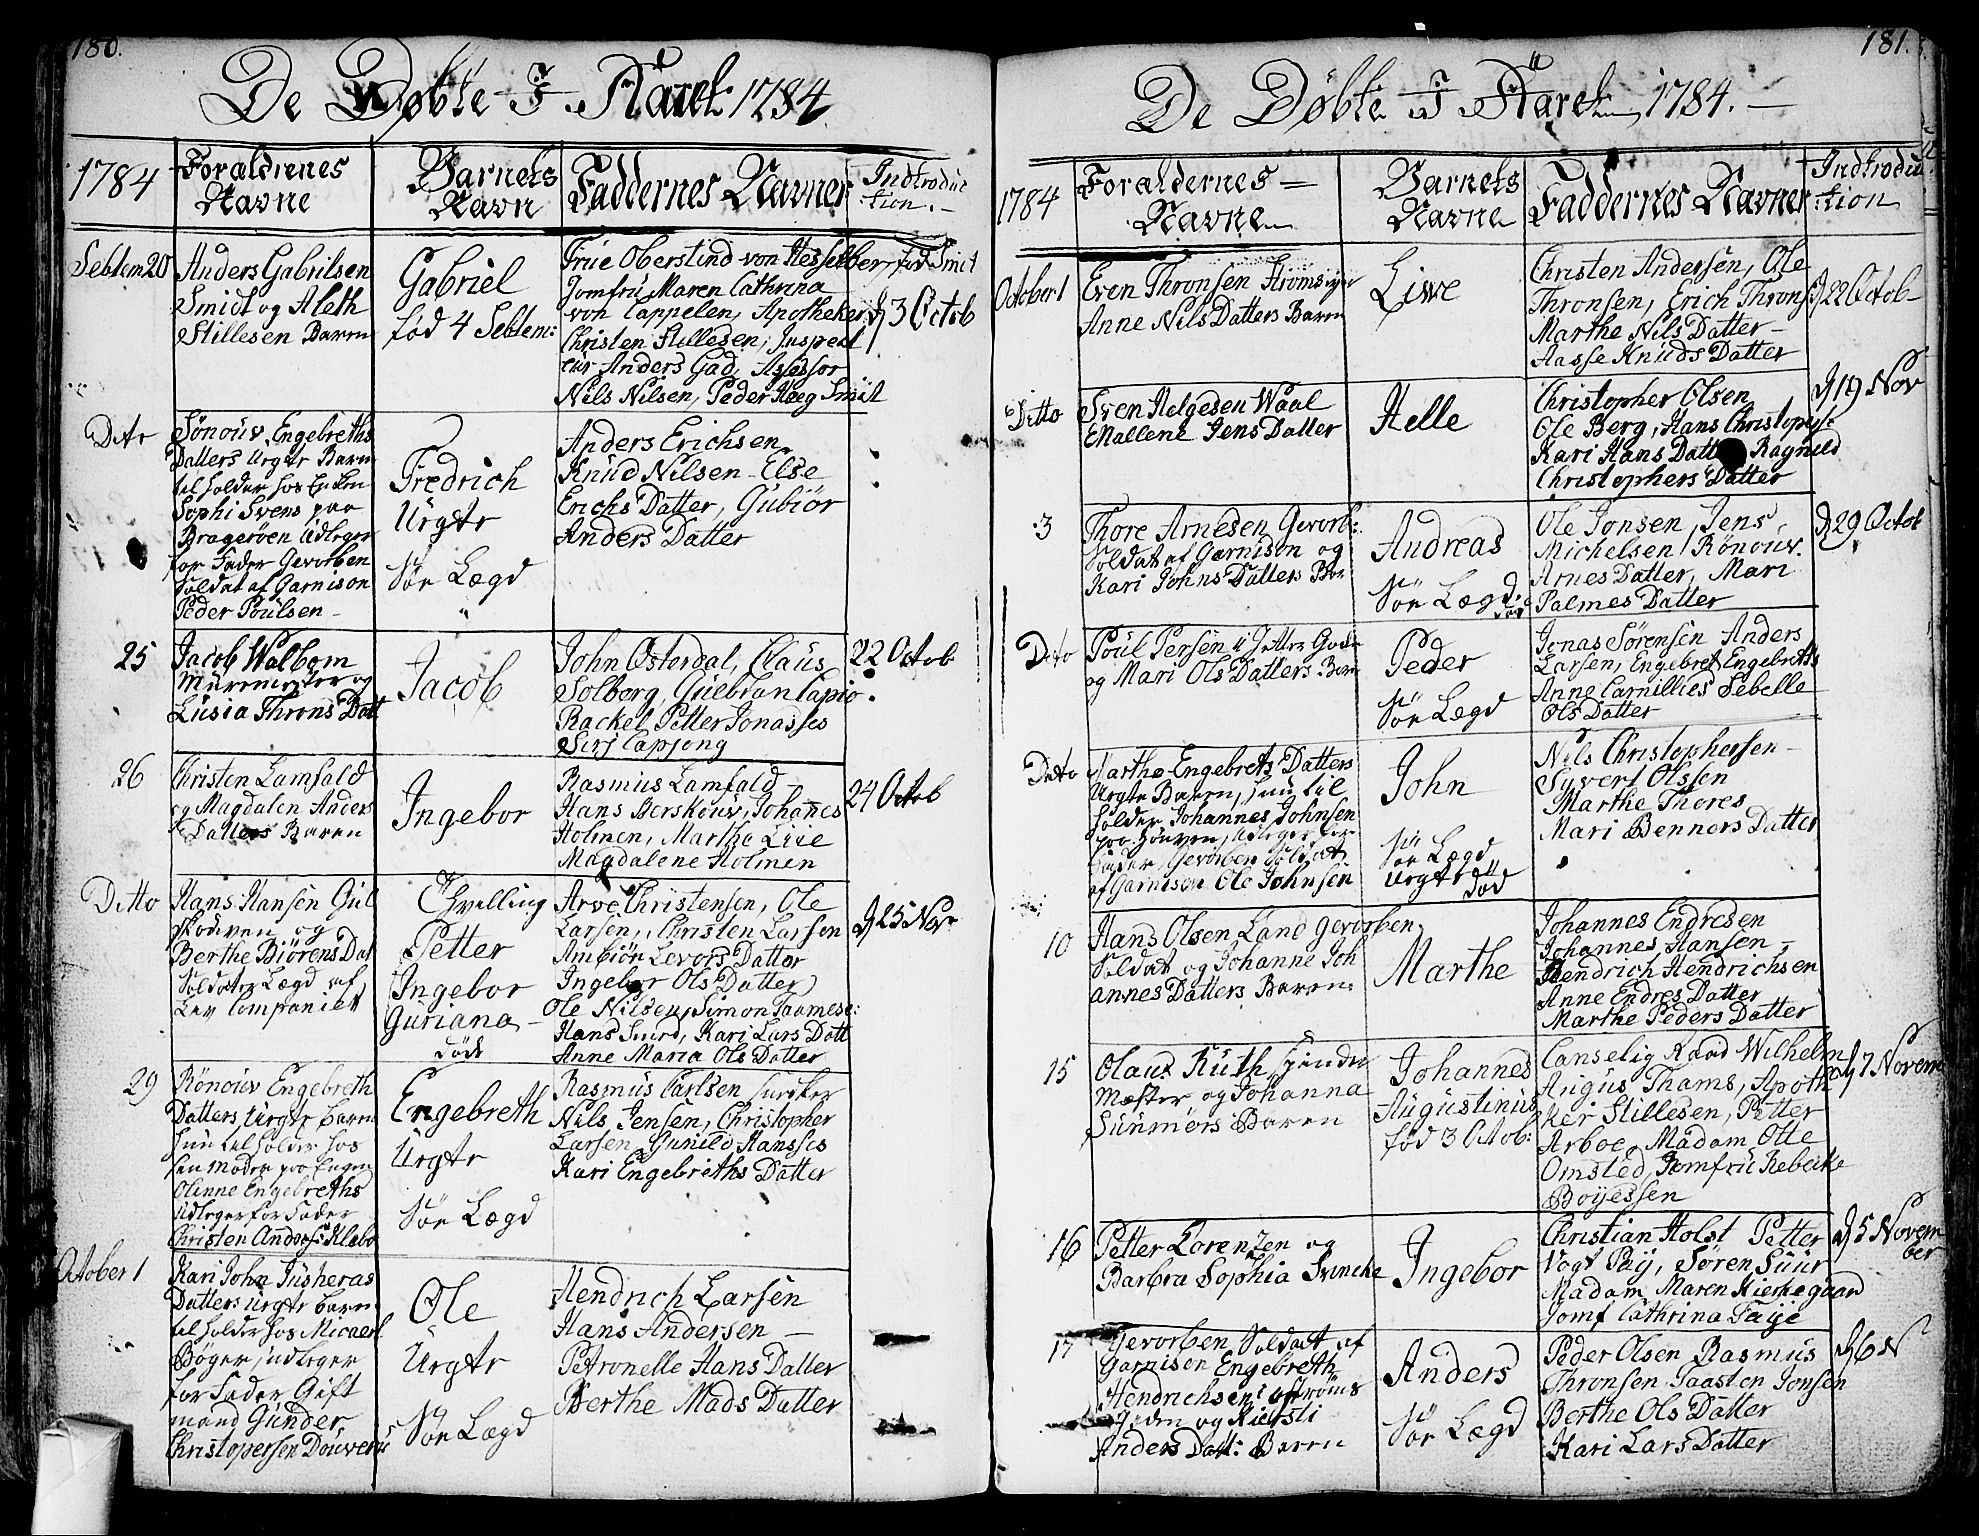 180.
De Døbte I Aaret 1784
1784
Foraldrenes
Navne
Barnets
Navn
Faddernes Navner
Indtroduc
tion.
Sebtem 20
Anders Gabrilsen
Smidt og Aleth
Stillesen Baren
Gabriel
fød 4 Sebtem:
Frue Oberstind von Hesselber, fød Smit
Jomfru Maren Cathrina
von Cappelen, Apotheker
Christen Stillesen, Inspect
eur Anders Gad, Asessor
Nils Nilsen, Peder Høeg Smit
3 Octob
Detto
Sønouv Engebreths
Datters Urgte Barn
til holder hos Enken
Sophi Svens paa
Bragerøen Udleger
for Fader Gevorben
Soldat af Garnison
Peder Poulsen
Fredrich
Urgte
Sør Lægd
Anders Erichsen
Knud Nilsen Else
Erichs Datter, Gubiør
Anders Datter
25
Jacob Walbom
Murmester og
Lusia Throns Datt
Jacob
John Osterdal, Claus
Solborg, Guebran Capio
Rackel Petter Jonasses
Sirj Capjong
22 Octob
26
Christen Lamfald
og Magdalen Anders
Datters Baren
Ingebor
Rasmus Lamfald
Hans Berskouv, Johannes
Holmen, Marthe Live
Magdalene Holmen
24 Octob
Ditto
Hans Hansen Gul
skouven og
Berthe Biørens Dat
Soldater Lægd af
Lev Companiet
Tvelling
Petter
Ingebor
Guriana
døde
Arve Christensen, Ole
Larsen, Christen Larsen
Ambiør Levors Datter
Ingebor Ols Datter
Ole Nilsen, Simon Taamese:
Hans Smed, Kari Lars Datt
Anne Maria Ols Datter
25 Nov
29
Rønouv Engebreth
Datters Urgte barn
hun til holder hos
sen moder paa Engen
Olinne Engebreths
udleger for Fader
Christen Anders: Klebo
Engebreth
Urgte
Sør Lægd
Rasmus Carlsen
Nils Jensen, Christopher
Larsen, Gunild Hansses
Kari Engebreths Datter
October 1
Kari John Jusheras
Datters Urgte barn
til holder hos Micael
Bøger, udleger
for Fader Gift
mand Gunder
Christopersen Douveru
Ole
Urgte
Sør Lægd
Hendrich Larsen
Hans Andersen
Petronelle Hans Datter
Berthe Mads Datter
181.
De Døbte I Aaret 1784.
1784
Foraldernes
Navne
Barnets
Navne
Faddernes Navner
Indtroduc
tion
October 1
Even Thronsen Strømsøe
Anne Nils Datters Baren
Live
Christen Andersen, Ole
Thronsen, Erich Throns
Marthe Nils Datter
Aasse Knuds Datter
22 Octob
Ditto
Sven Helgesen Waal
Mallene Jens Datter
Helle
Christopher Olsen
Ole Berg, Hans Christophs:
Kari Hans Datter Ragnild
Christophers Datter
19 Nov
3
Thore Arnesen Gevorb:
Soldat af Garnison og
Kari Johns Datters Bar
Andreas
Sør Lægd.
død
Ole Jonsen, Jens
Michelsen, Rønouv
Arnes Datter, Mari
Palmes Datter
29 Octob
Detto
Poul Persen
og Mari Ols Datters Barn
Peder
Sør Lægd
Jonas Sørensen Anders
Larsen, Engebret Engebreths
Anne Carnillies Sebelle
Ols Datter
Detto
Marthe Engebrets Datters
Urgte Baren, hun til
holder Johannes Johnsen
paa Houven, udleger for
Fader, Gevorben Soldat
af Garnison Ole Johnsen
John
Sør Lægd
Urgte død
Nils Christophersen
Syvert Olssen
Marthe Thores
Mari Benners Datter
10
Hans Olsen Land Gevorben
Soldat og Johanne Joh
annes Datters Baren:
Marthe
Johannes Endresen
Johannes Hansen
Hendrich Hendrichsen
Anne Endres Datter
Marthe Peders Datter
15
Olaus Ruth
Mester og Johanna
Sunmørs Baren
Johannes
Augustinus
fød 3 Octob:
Canselig Raad Wilhelm
Augus Thams, Apoth
ker Stillesen, Petter
Arboe, Madam Otte
Omsted, Jomfru Rebecke
Boyessen
7 Novem
16
Petter Lorenzen og
Barbra Sophia Svincke
Ingebor
Christian Holst Petter
Vogt Pay, Søren Suur
Madam Maren Kierkegaard
Jomf Cathrina Faye
5 Novem
ber
17
Gevorben Soldat af
Garnison Engebreth
Hendrichsen Strøms
Jeden og Kiersti
Anders Datt: Baren
Anders
Sør Lægd
Peder Olsen Rasmus
Thronsen Taasten Jonsen
Berthe Ols Datter
Kari Lars Datter
6 N